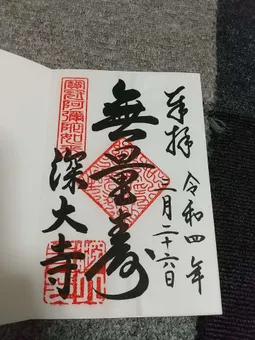 奉拝
令和四年
二月二十六日
無量寿
寳冠阿彌陀如来
深大寺